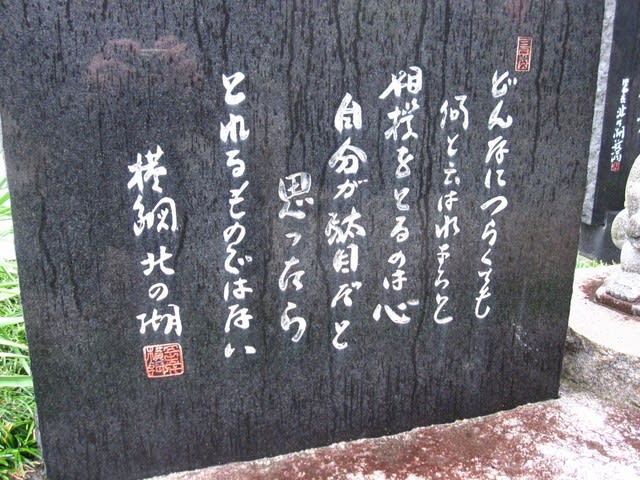 どんなにつらくても
何と云はれやうと
相撲をとるのは心
自分が駄目だと
思ったら
とれるものではない
横綱 北の湖